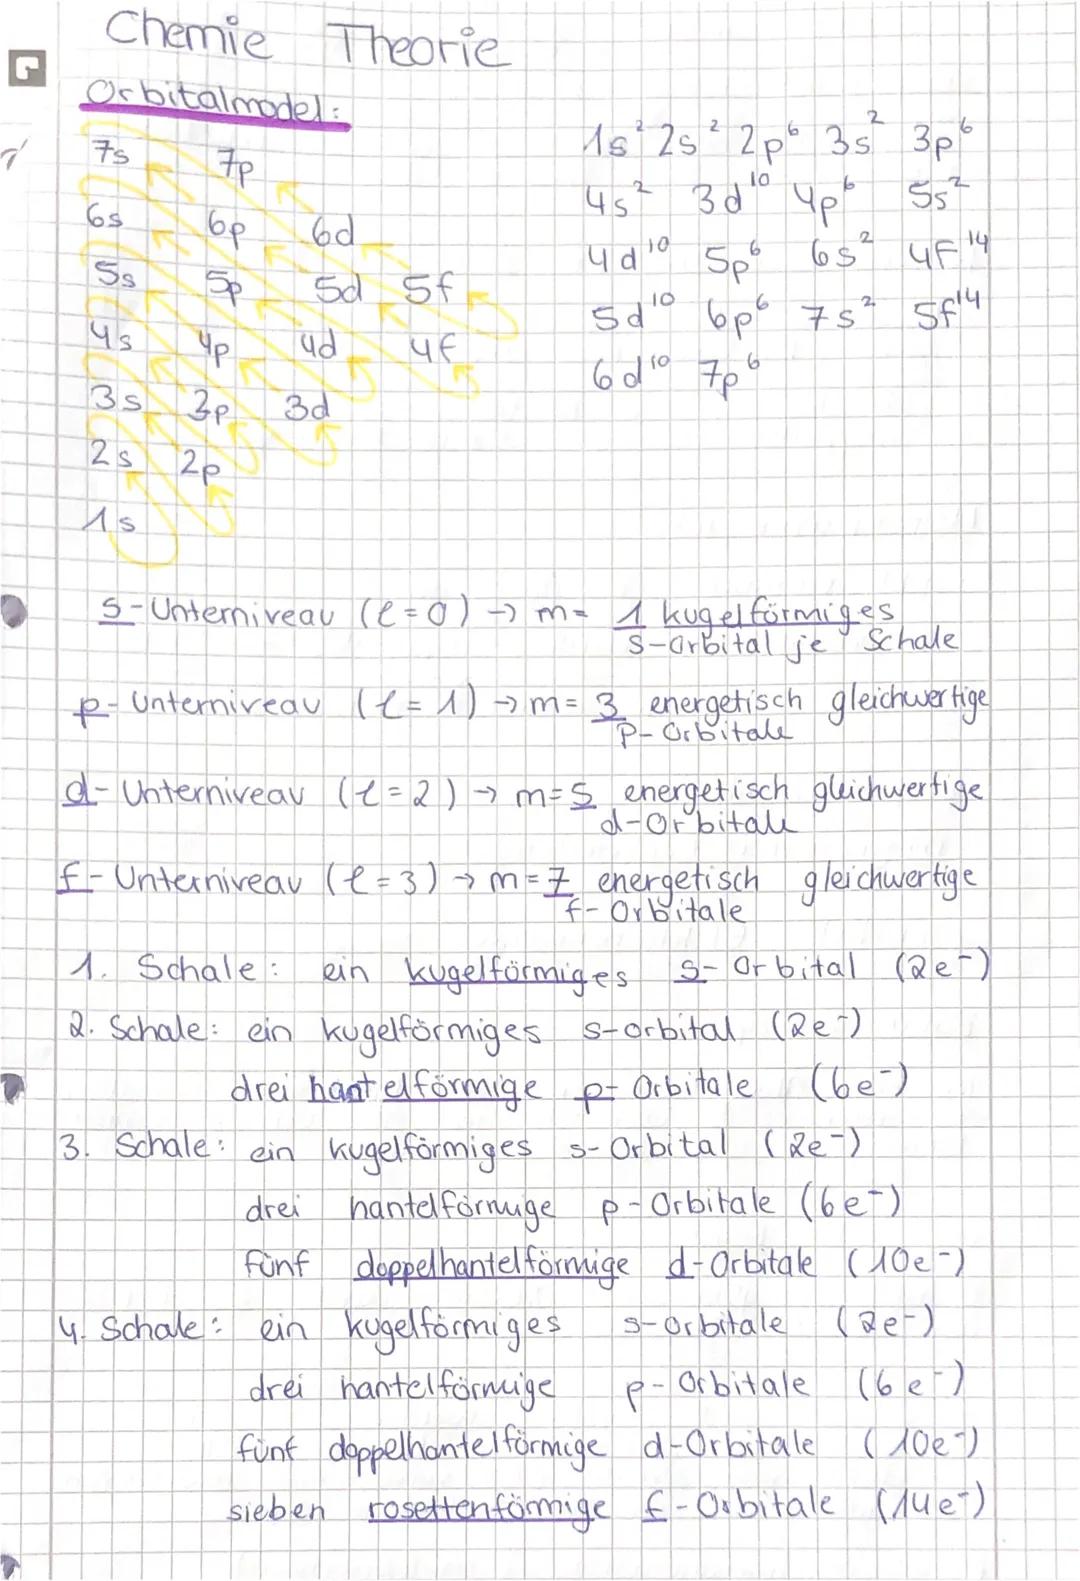 Chemie Theorie
Orbitalmodel:
7s 7p
6s 6p 6d
5s 5p 5d 5f
4s 4p 4d 4f
3s 3p 3d
2s 2p
1s
1s² 2s² 2p⁶ 3s² 3p⁶
4s² 3d¹⁰ 4p⁶ 5s²
4d¹⁰ 5p⁶ 6s² 4f¹⁴
5d¹⁰ 6p⁶ 7s² 5f¹⁴
6d¹⁰ 7p⁶
s-Unterniveau (l=0) → m= 1 kugelförmiges
s-Orbital je Schale
p-Unterniveau (l=1) → m= 3 energetisch gleichwertige
p-Orbitale
d-Unterniveau (l=2) → m=5 energetisch gleichwertige
d-Orbitale
f-Unterniveau (l=3) → m=7 energetisch gleichwertige
f-Orbitale
1. Schale: ein kugelförmiges s-Orbital (2e⁻)
2. Schale: ein kugelförmiges s-orbital (2e⁻)
drei hantelförmige p-Orbitale (6e⁻)
3. Schale: ein kugelförmiges s-Orbital (2e⁻)
drei hantelförmige p-Orbitale (6e⁻)
fünf doppelhantelförmige d-Orbitale (10e⁻)
4. Schale: ein kugelförmiges s-orbitale (2e⁻)
drei hantelförmige p-Orbitale (6e⁻)
fünf doppelhantelförmige d-Orbitale (10e⁻)
sieben rosettenförmige f-Orbitale (14e⁻)